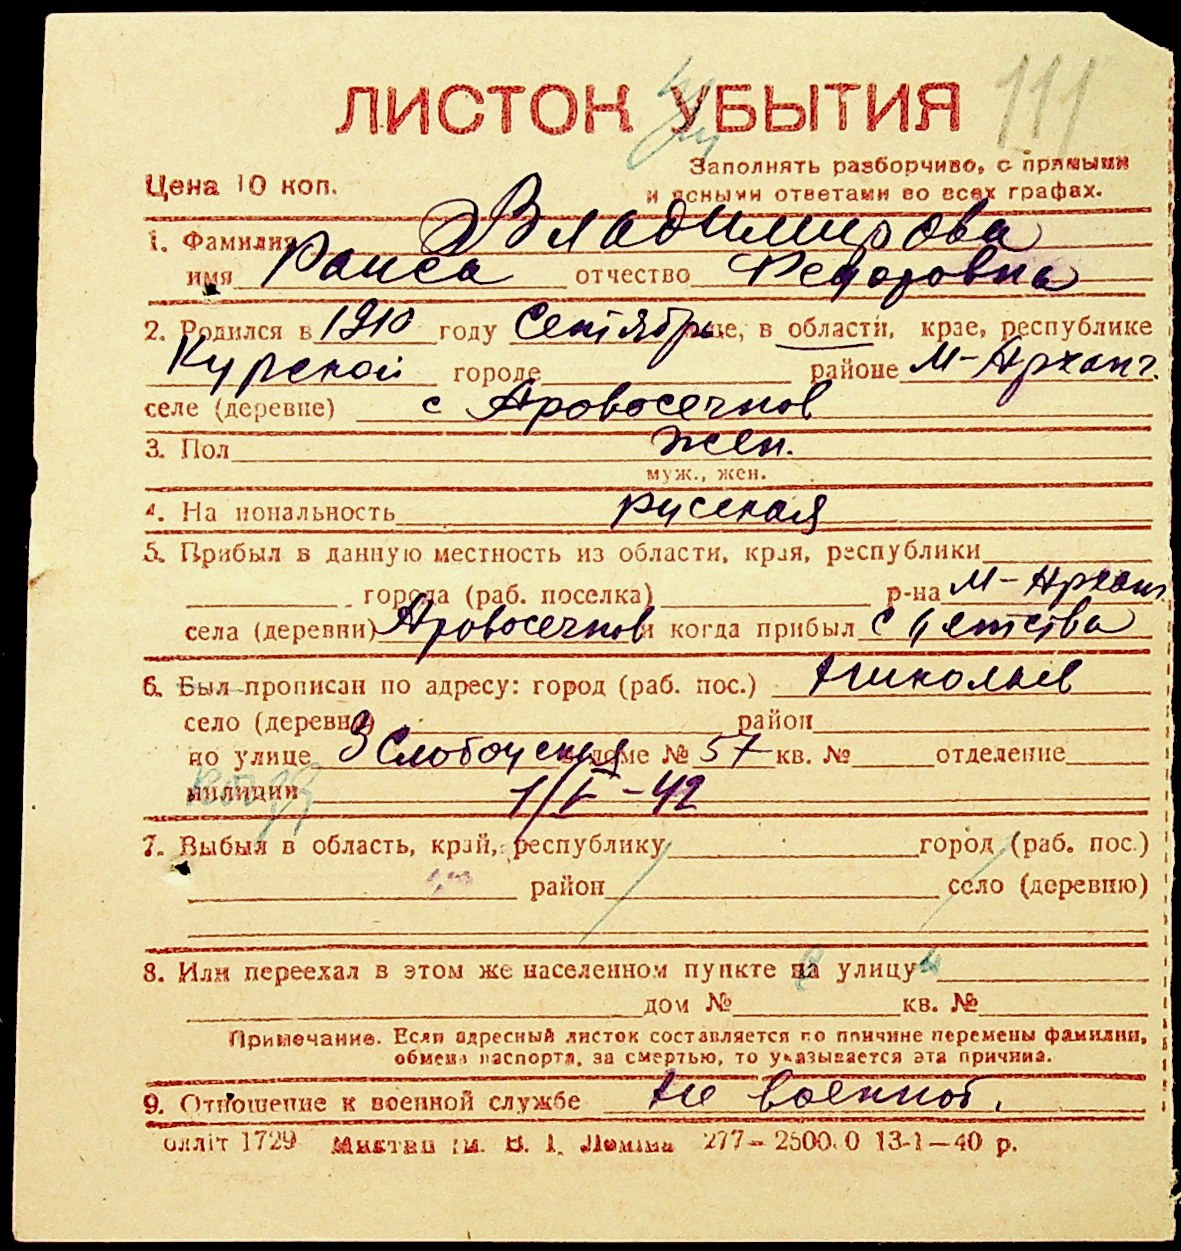 ЛИСТОК УБЫТИЯ 111
Цена 10 коп.
Заполнять разборчиво, с прямыми
и ясными ответами во всех графах.
1. Фамилия Владимирова
имя Раиса отчество Федоровна
2. Родился в 1910 году Сентябрь в области, крае, республике
Курской городе районе М-Арханг.
селе (деревне) с Аровосечнов
3. Пол жен.
муж., жен.
4. Национальность русская
5. Прибыл в данную местность из области, края, республики
города (раб. поселка) р-на М-Арханг
села (деревни) Аровосечнов и когда прибыл с детства
6. Был прописан по адресу: город (раб. пос.) Николаев
село (деревня) район
по улице 3 Слободская доме № 57 кв. № отделение
милиции 1/I-42
7. Выбыл в область, край, республику город (раб. пос.)
район село (деревню)
8. Или переехал в этом же населенном пункте на улицу
дом № кв. №
Примечание. Если адресный листок составляется по причине перемены фамилии,
обмена паспорта, за смертью, то указывается эта причина.
9. Отношение к военной службе Не военноб.
олліт 1729 ім. В. І. Леніна 277–2500.0 13-1–40 р.